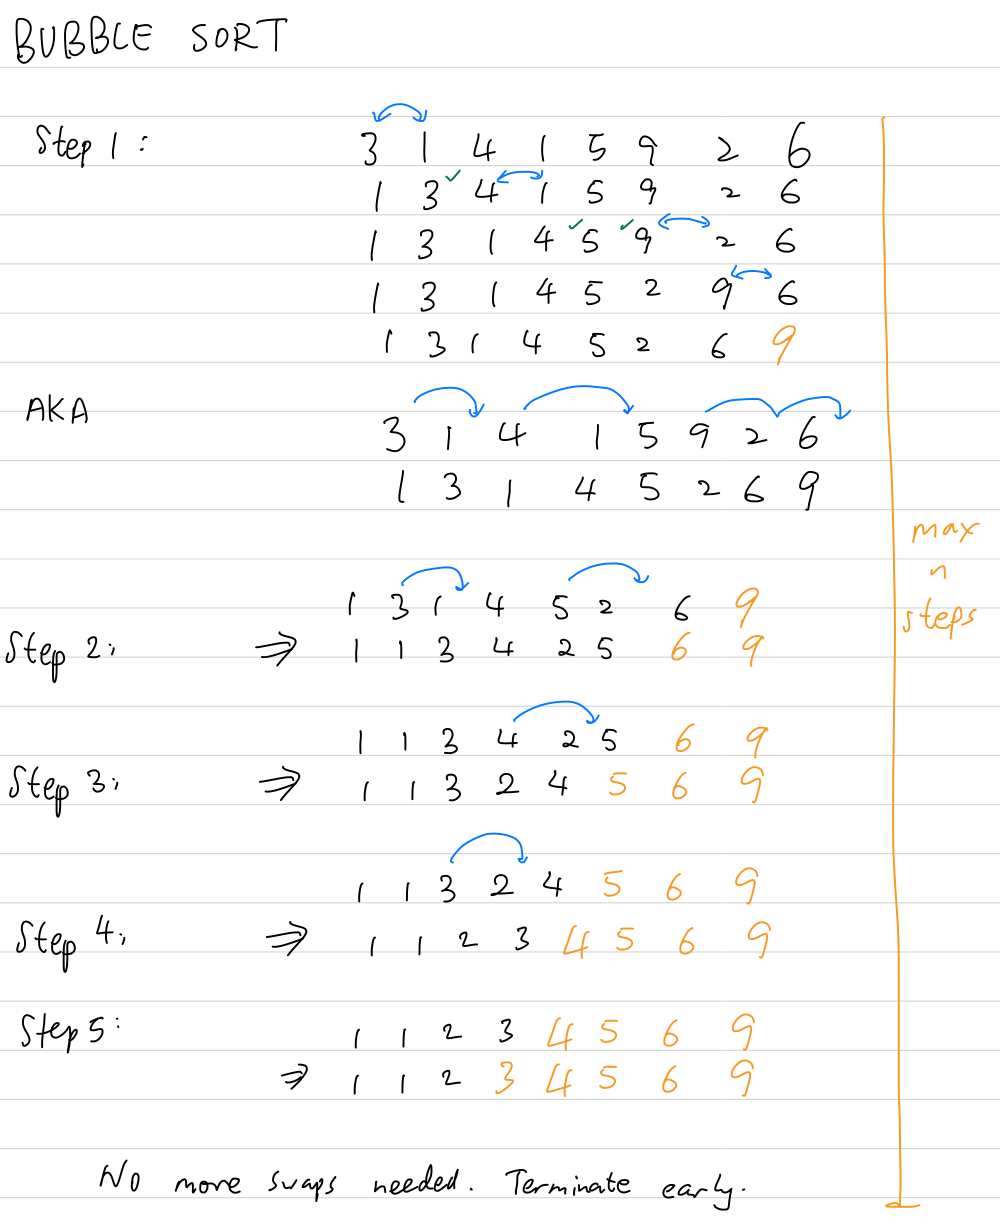 BUBBLE SORT
Step 1: 3 1 4 1 5 9 2 6
1 3 ✓ 4 1 5 9 2 6
1 3 1 4 ✓ 5 ✓ 9 2 6
1 3 1 4 5 2 9 6
1 3 1 4 5 2 6 9
AKA
3 1 4 1 5 9 2 6
1 3 1 4 5 2 6 9
max
n
steps
1 3 1 4 5 2 6 9
Step 2: ⇒ 1 1 3 4 2 5 6 9
1 1 3 4 2 5 6 9
Step 3: ⇒ 1 1 3 2 4 5 6 9
1 1 3 2 4 5 6 9
Step 4: ⇒ 1 1 2 3 4 5 6 9
Step 5: 1 1 2 3 4 5 6 9
⇒ 1 1 2 3 4 5 6 9
No more swaps needed. Terminate early.